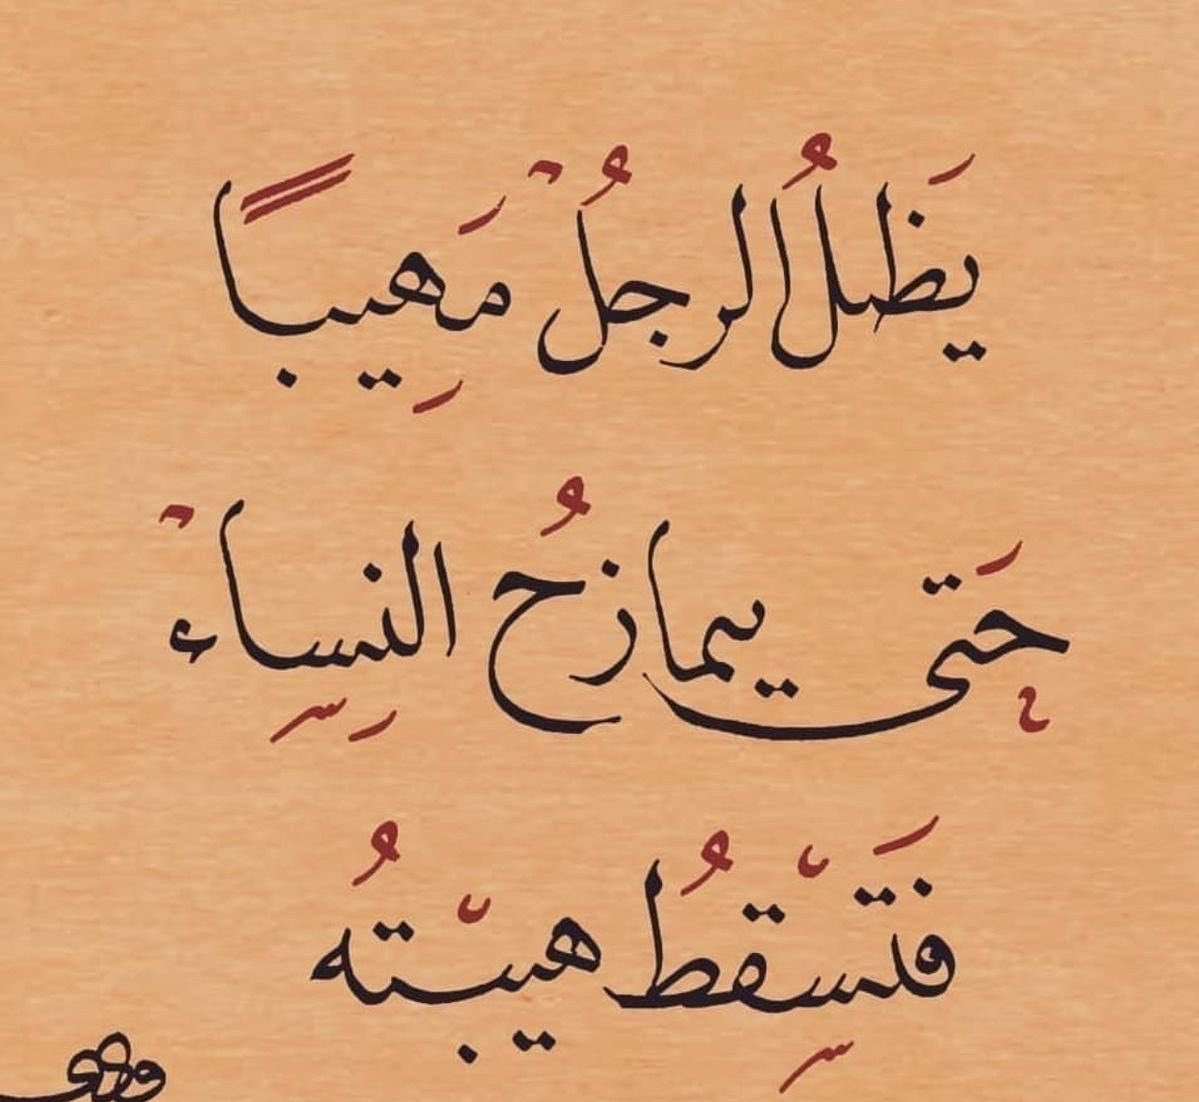 يَظلُ الرجُلْ مَهِيباً
حَتى يمازحُ النِساءْ
فَتَسْقِطُ هيبْتهُ